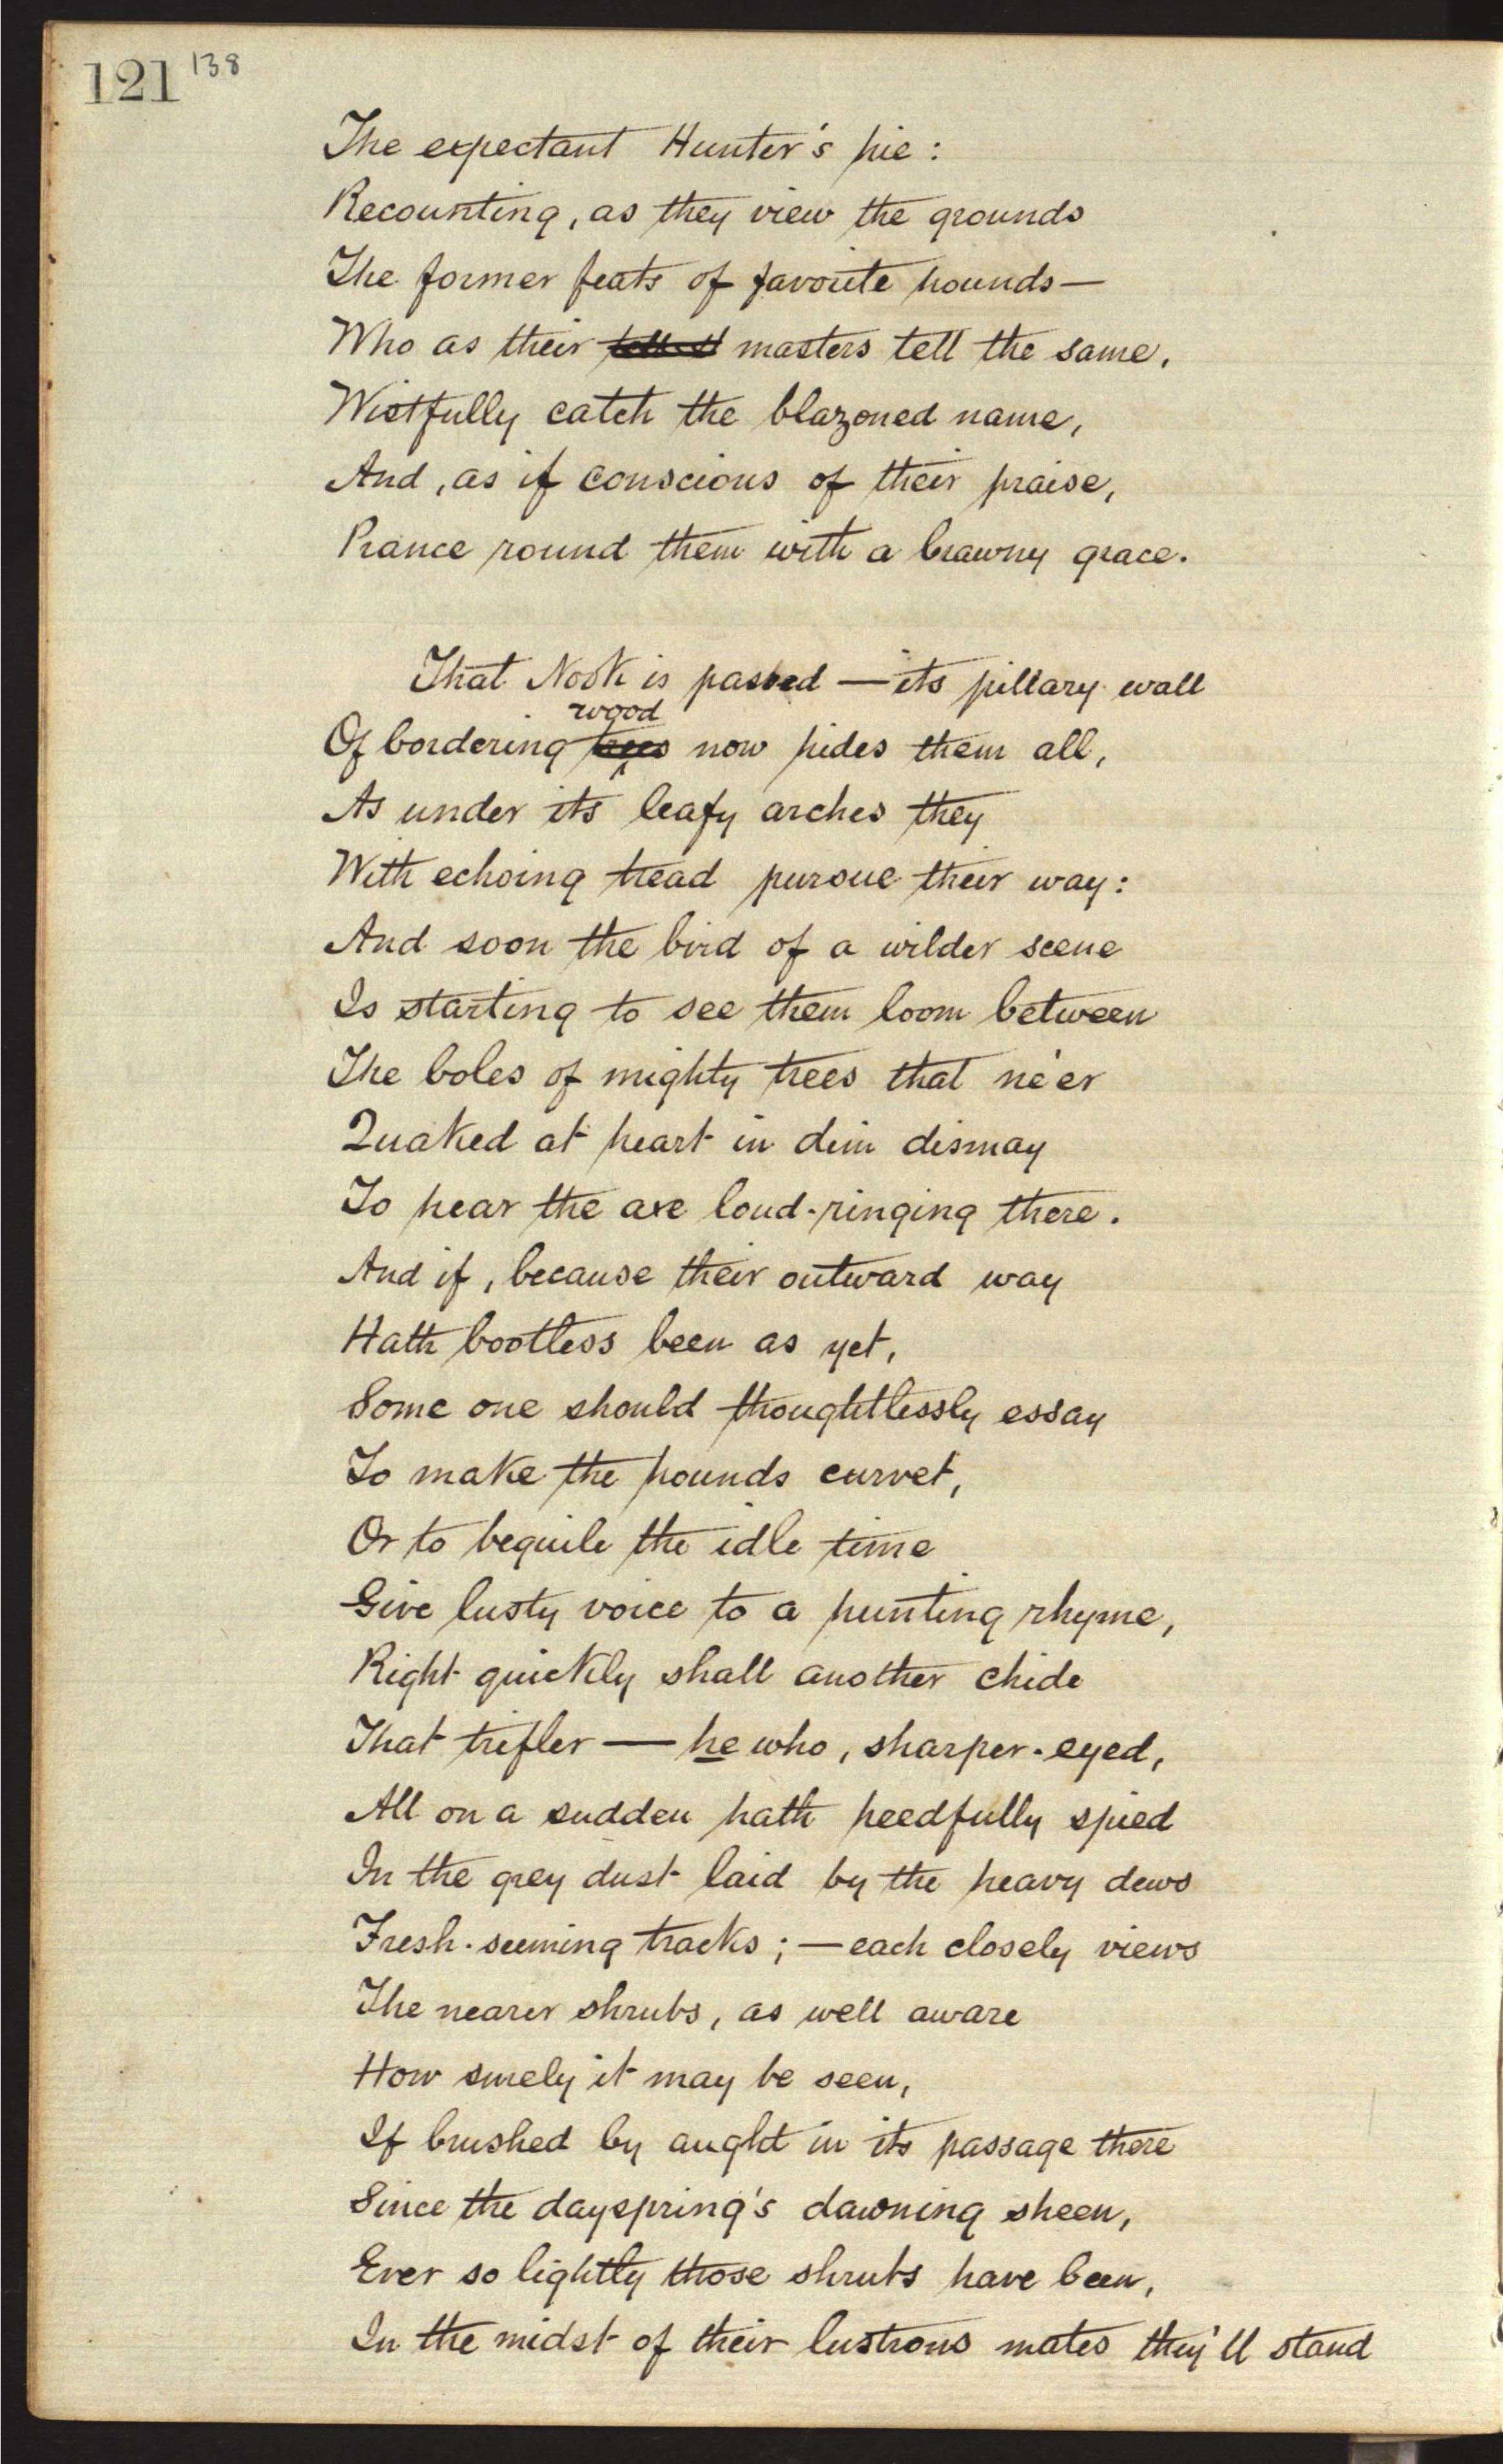 121 138
The expectant Hunter's hie:
Recounting, as they view the grounds
The former feats of favorite hounds—
Who as their masters tell the same,
Wistfully catch the blazoned name,
And, as if conscious of their praise,
Prance round them with a brawny grace.
That Nook is passed — its pillary wall
wood
Of bordering trees now hides them all,
As under its leafy arches they
With echoing tread pursue their way:
And soon the bird of a wilder scene
Is starting to see them loom between
The boles of mighty trees that ne'er
Quaked at heart in dim dismay
To hear the axe loud-ringing there.
And if, because their outward way
Hath bootless been as yet,
Some one should thoughtlessly essay
To make the hounds curvet,
Or to beguile the idle time
Give lusty voice to a hunting rhyme,
Right quickly shall another chide
That trifler — he who, sharper-eyed,
All on a sudden hath heedfully spied
In the grey dust laid by the heavy dews
Fresh-seeming tracks; — each closely views
The nearer shrubs, as well aware
How surely it may be seen,
If brushed by aught in its passage there
Since the dayspring's dawning sheen,
Ever so lightly those shrubs have been,
In the midst of their lustrous mates they'll stand